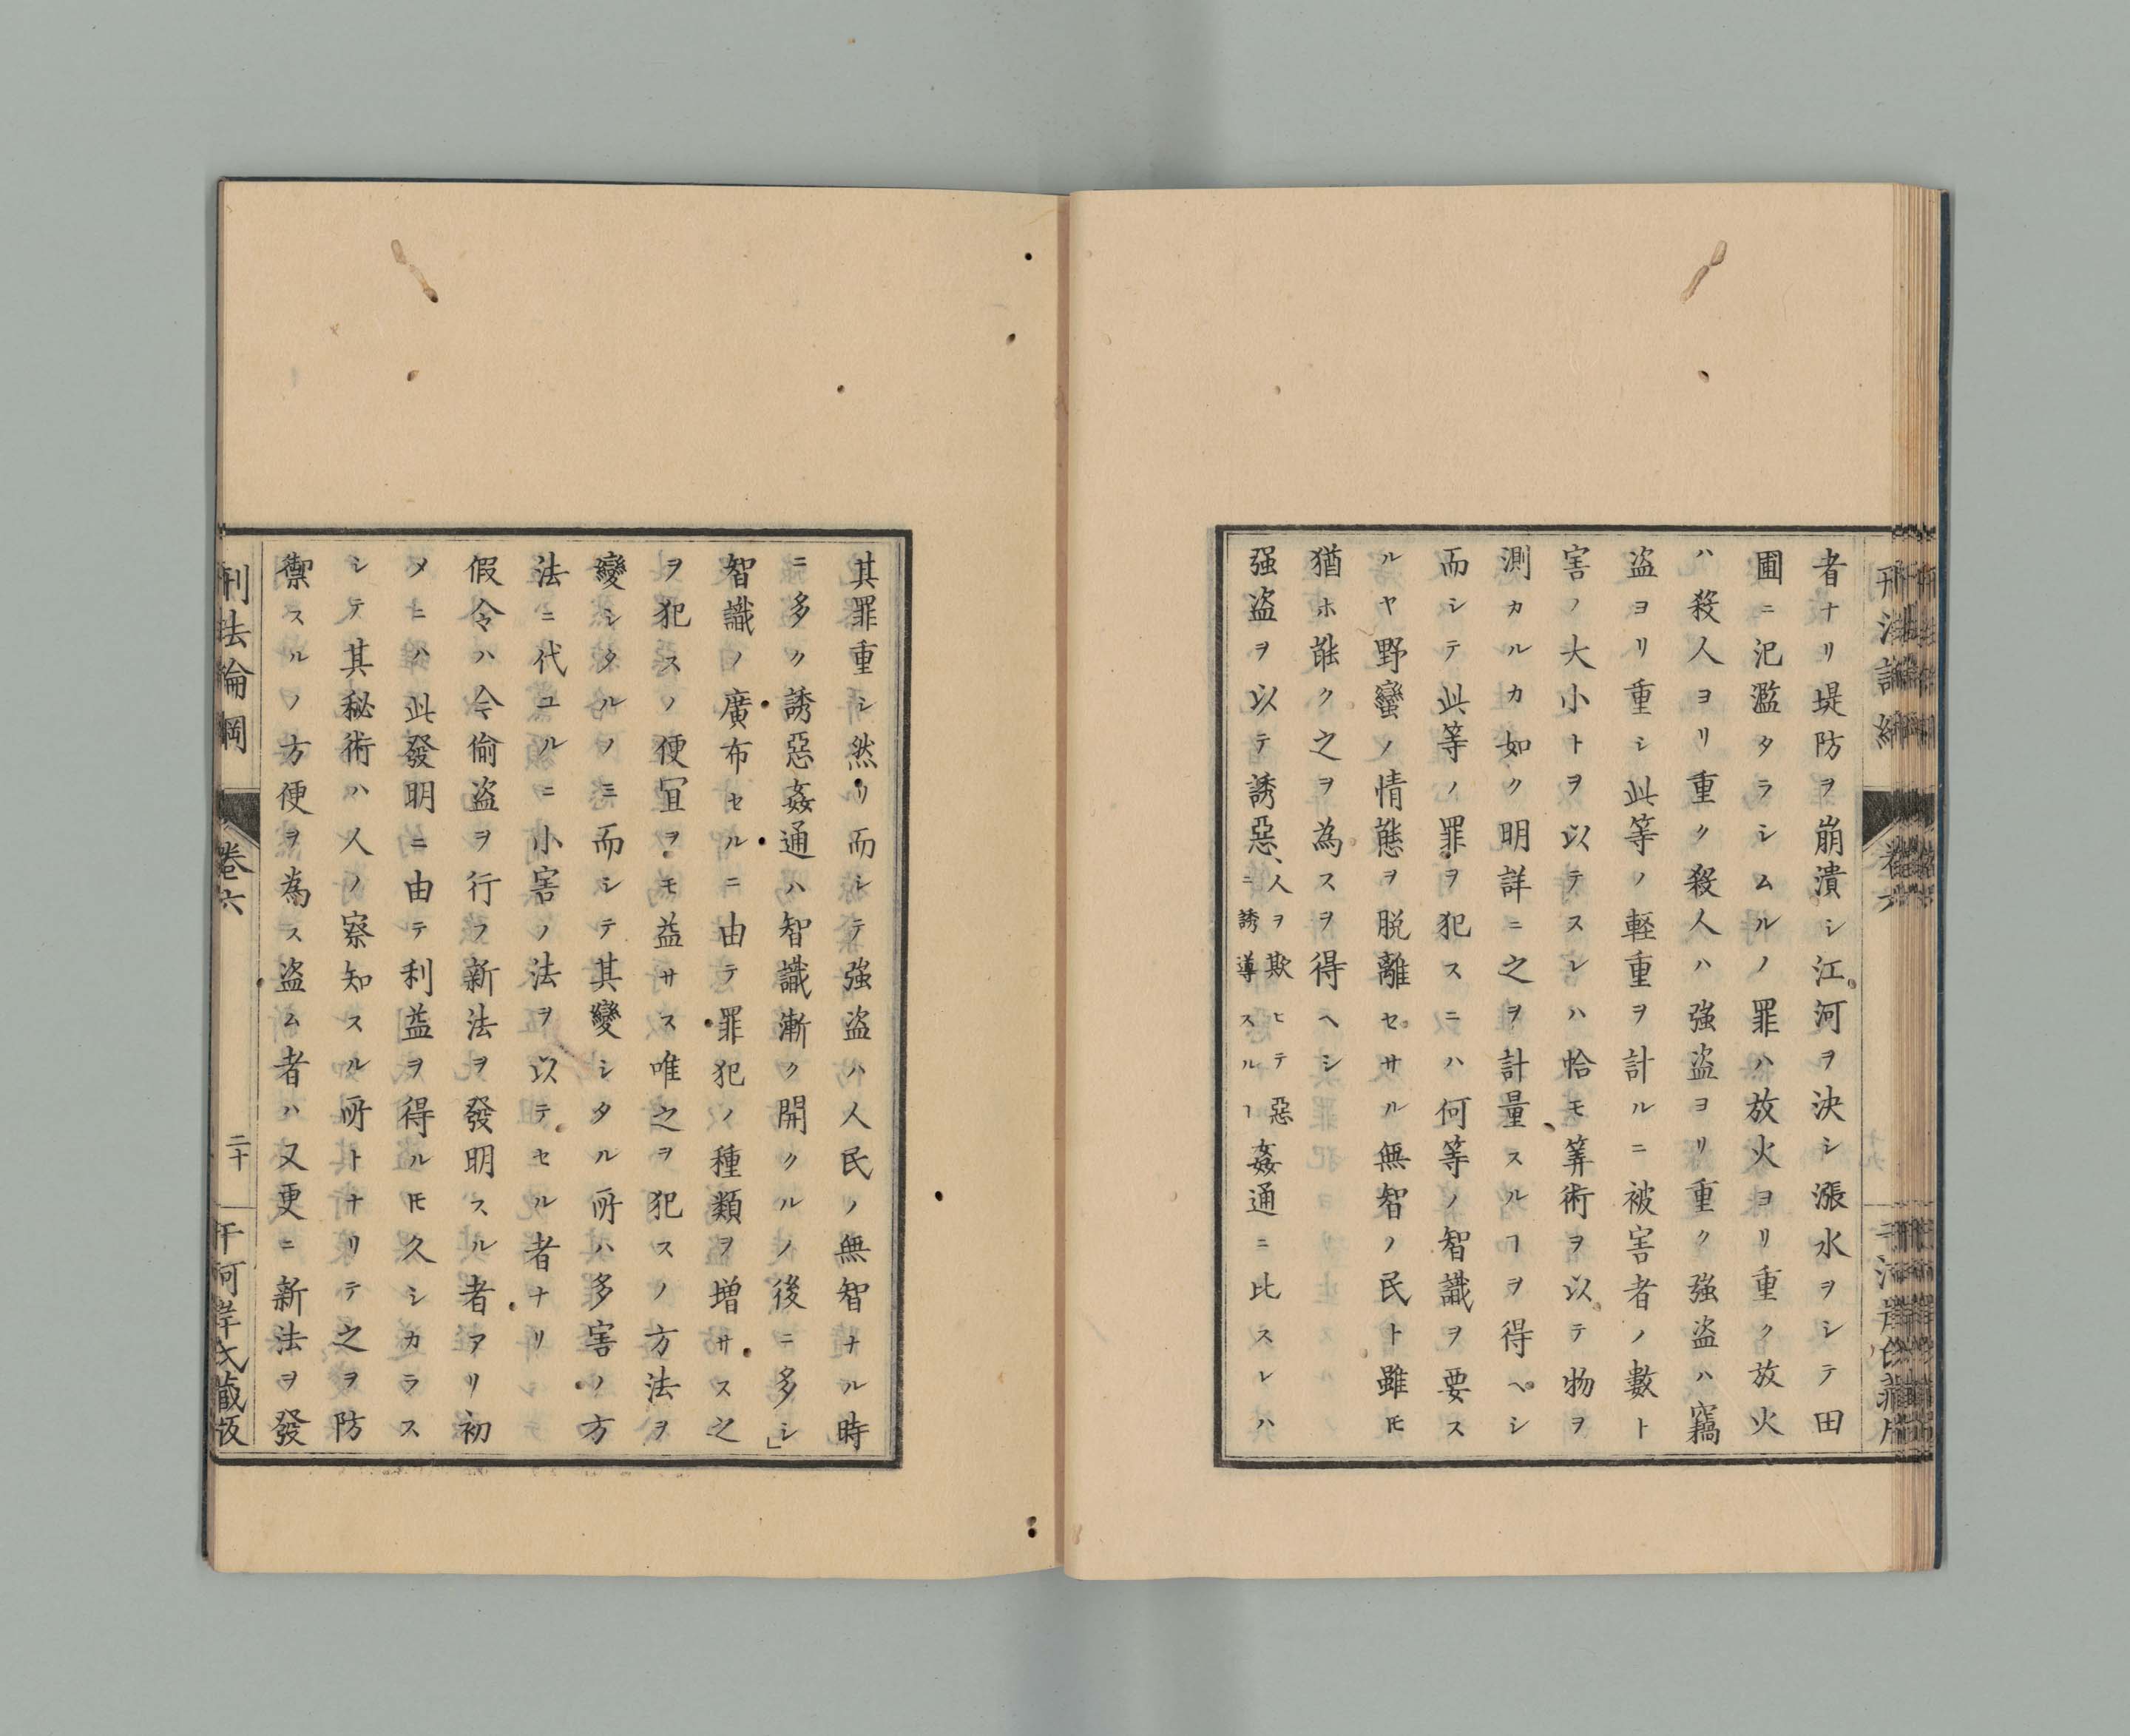 者ナリ堤防ヲ崩潰シ江河ヲ決シ漲水ヲシテ田
圃ニ氾濫タラシムルノ罪ハ放火ヨリ重ク放火
ハ殺人ヨリ重ク殺人ハ強盗ヨリ重ク強盗ハ竊
盗ヨリ重シ此等ノ輕重ヲ計ルニ被害者ノ數ト
害ノ大小トヲ以テスレハ恰モ筭術ヲ以テ物ヲ
測カルカ如ク明詳ニ之ヲ計量スルヿヲ得ヘシ
而シテ此等ノ罪ヲ犯スニハ何等ノ智識ヲ要ス
ルヤ野蠻ノ情態ヲ脱離セサル無智ノ民ト雖𪜈
猶ホ能ク之ヲ為スヲ得ヘシ
强盗ヲ以テ誘惡、人ヲ欺ヒテ惡ニ誘導スルヿ姦通ニ比スレハ
其罪重シ然リ而シテ強盗ハ人民ノ無智ナル時
ニ多ク誘惡姦通ハ智識漸ク開クルノ後ニ多シ」
智識ノ廣布セルニ由テ罪犯ノ種類ヲ増サス之
ヲ犯スノ便冝ヲモ益サス唯之ヲ犯スノ方法ヲ
變シタルノミ而シテ其變シタル所ハ多害ノ方
法ニ代ユルニ小害ノ法ヲ以テセル者ナリ
假令ハ今偷盗ヲ行フ新法ヲ發明スル者アリ初
メニハ此發明ニ由テ利益ヲ得ル𪜈久シカラス
シテ其秘術ハ人ノ察知スル所トナリテ之ヲ防
禦スルノ方便ヲ為ス盗ム者ハ又更ニ新法ヲ發
刑法論綱
卷六
二十
千河岸氏蔵版